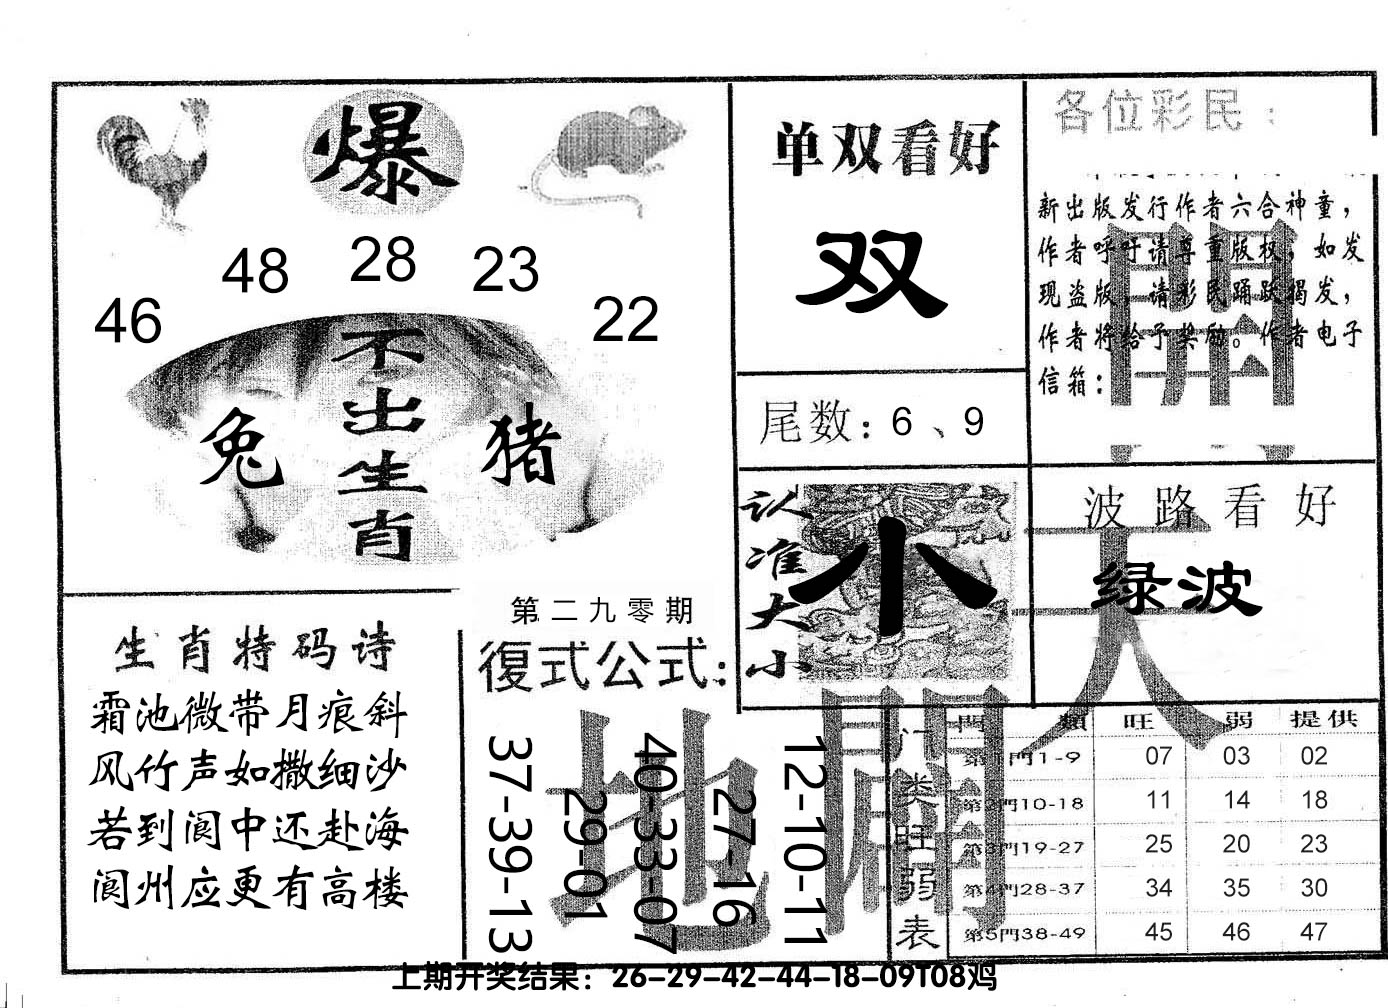 爆
46 48 28 23 22
不出生肖
兔
猪
单双看好
双
尾数：6、9
各位彩民：
新出版发行作者六合神童，
作者呼吁请尊重版权，如发
现盗版，请彩民踊跃揭发，
作者将给予奖励。作者电子
信箱：
開
认准大小
小
波路看好
绿波
天
生肖特码诗
霜池微带月痕斜
风竹声如撒细沙
若到阆中还赴海
阆州应更有高楼
第二九零期
復式公式：
37-39-13
29-01
40-33-07
27-16
12-10-11
地
開
门类旺弱表
門類 旺 弱 提供
第1門1-9 07 03 02
第2門10-18 11 14 18
第3門19-27 25 20 23
第4門28-37 34 35 30
第5門38-49 45 46 47
上期开奖结果：26-29-42-44-18-09T08鸡